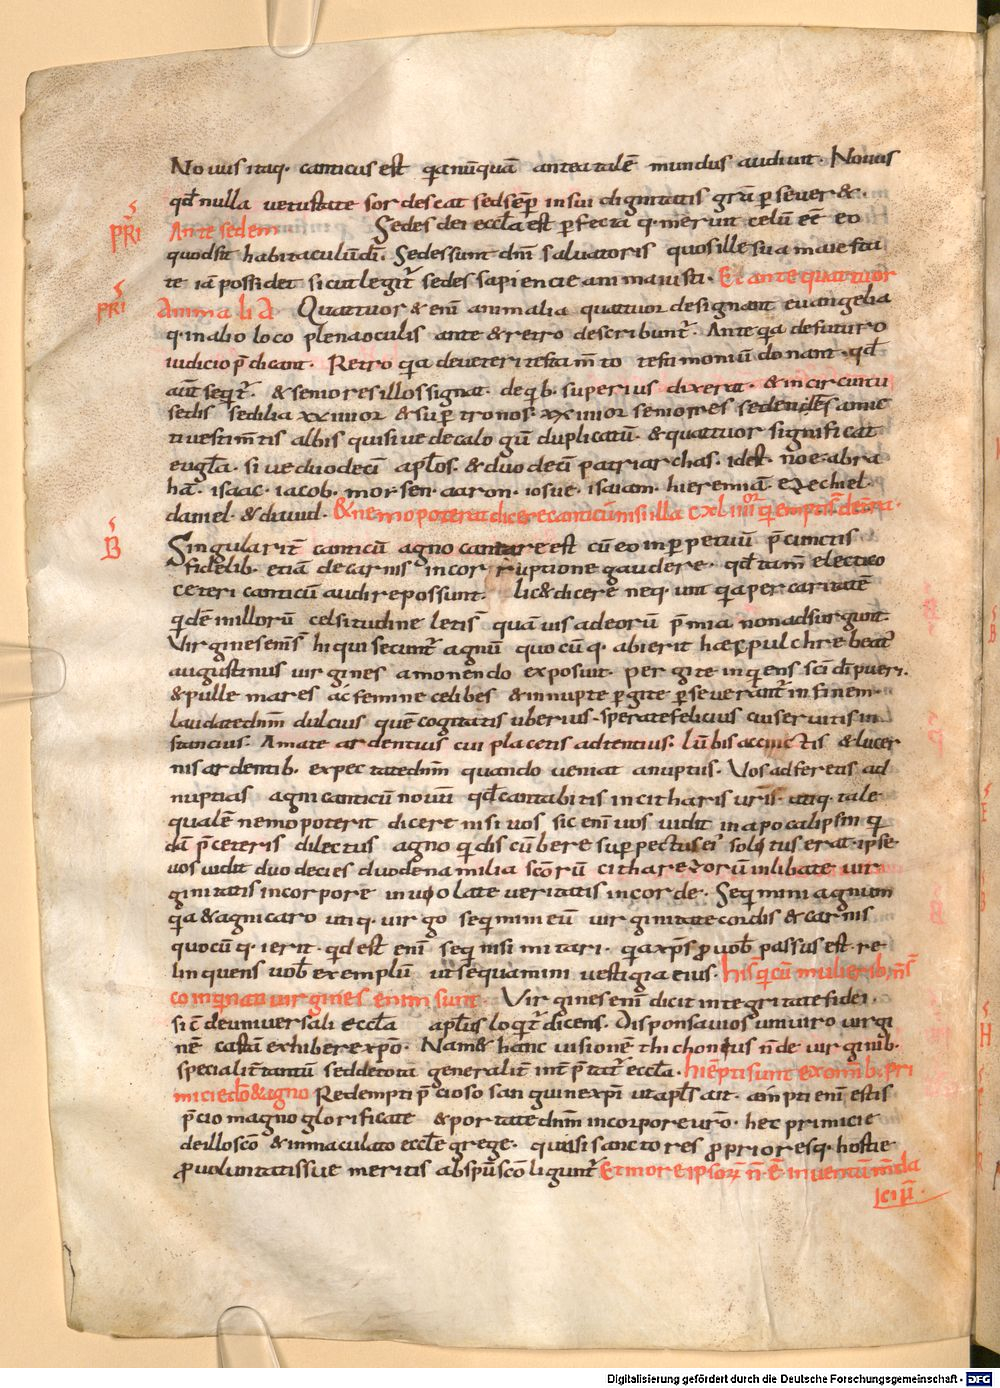 Nouus itaq· canticus est qa nūquā antea talē mundus audiuit· Nouus
qd̄ nulla uetustate sordescat sed sēp in sui dignitatis gr̄a perseueret·
PRI Ante sedem Sedes dei eccl̄a est perfecta q· meruit celū eē eo
quod sit habitaculū di· Sedes sunt dn̄i saluatoris quos ille sua maiesta
te iā possidet sicut legit̄ sedes sapiencie anima iusti· Et ante quattuor
PRI Animalia Quattuor & enī animalia quatuor designant euangelia
q in alio loco plena oculis ante & retro describunt̄· Ante qa de futuro
iudicio p̄dicant· Retro qa de ueteri testam̄to testimoniū donant· qd̄
aūt seqt̄· & seniores illos signat· de qb· superius dixerat· & in circuitu
sedis sedilia xxiiiior & super tronos xxiiiior seniores sedentes amic
ti uestim̄tis albis qui siue decalogū duplicatū· & quattuor significat
eugl̄a· siue duodecī apl̄os· & duodecī patriarchas· idest· noe· abra
hā· isaac· iacob· moysen· aaron· iosue· isaiam· hieremiā· ezechiel·
daniel· & dauid· & nemo poterat dicere canticū nisi illa cxl iiiior q̄ empti s̄ de t̄ra·
B Singularit̄ canticū agno cantare est cū eo in perpetuū p̄ cunctis
fidelib· etiā de carnis incorruptione gaudere· qd̄ tam̄ electi co
ceteri canticū audire possunt· lic& dicere neq· unt qa per caritatē
qdē in illorū celsitudine letis quāuis ad eorū p̄mia non adsurgunt·
Virgines enī s̄ hi qui secunt̄ agnū quocūq· abierit hæc pulchre beat̄
augustinus uirgines amonendo exposuit· pergite inquiens sc̄i dī pueri·
& pulle mares ac femine celibes & innupte pergite perseuerant̄ in finem·
laudate dn̄m dulcius quē cogitatis uberius· sperate felicius cui seruitis in
stancius· Amate ardentius cui placetis adtentius· lūbis accinctis & lucer
nis ardentib· expectate dn̄m quando ueniat a nuptiis· Vos adferetis ad
nuptias agni canticū nouū qd̄ cantabitis in citharis ur̄is· utiq· tale
qualē nemo poterit dicere nisi uos sic enī uos uidit in apocalipsin qi
dā p̄ ceteris dilectus agno qi discūbere sup pectus ei' solitus erat· ipse
uos uidit duodecies duodena milia sc̄orū citharezorū inlibate uir
ginitatis in corpore inuiolate ueritatis in corde· Seqimini agnum
qa & agni caro utiq· uirgo seqimini eū uirginitate cordis & carnis
quocūq· ierit· qd̄ est enī seqi nisi imitari· qa xp̄s p uob̄ passus est· re
linquens uob̄ exemplū ut sequamini uestigia eius· hi s̄ qi cū mulierib; n̄ s̄
coinqnati uirgines enim sunt· Virgines enī dicit integritate fidei·
sic̄ de uniuersali eccl̄a apl̄us loqit̄ dicens· Disponsaui uos uni uiro uirgi
nē castā exhibere xp̄o· Nam & hanc uisionē thichonius n̄ de uirginib·
specialit̄ tantū sed de tota generalit̄ int̄pr̄tat̄ eccl̄a· hi ēpti sunt ex omīb· pri
micie dō & agno Redempti p̄cioso sanguine xp̄i ut apl̄s ait· āmpti enī estis
p̄cio magno glorificate & portate dn̄m in corpore ur̄o· hec primicie
de illo sc̄o & immaculato eccl̄e grege· quasi sanctores proprioresq· hostie
pro uoluntatis sue meritis ab spū sc̄o ligunt̄ Et in ore ipsorꝝ n̄ ē inuentū m̄da
ciū